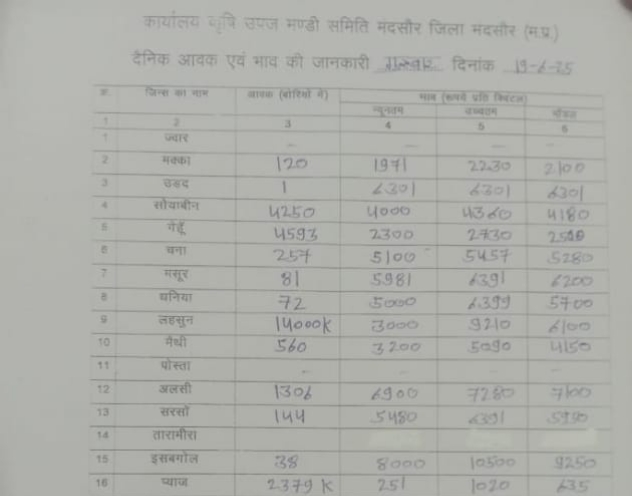 कार्यालय कृषि उपज मण्डी समिति मंदसौर जिला मंदसौर (म.प्र.)
दैनिक आवक एवं भाव की जानकारी गुरुवार दिनांक 19-6-25
क्र. जिन्स का नाम आवक (बोरियों में) भाव (रूपये प्रति क्विंटल)
न्यूनतम उच्चतम मॉडल
1 2 3 4 5 6
1 ज्वार - - - -
2 मक्का 120 1971 2230 2100
3 उड़द 1 6301 6301 6301
4 सोयाबीन 4250 4000 4360 4180
5 गेहूँ 4593 2300 2730
6 चना 257 5100 5457 5280
7 मसूर 81 5981 6391 6200
8 धनिया 72 5000 6399 5700
9 लहसुन 14000K 3000 9210 6100
10 मैथी 560 3200 5090 4150
11 पोस्ता - - - -
12 अलसी 1306 6900 7280 7100
13 सरसों 144 5480 6391
14 तारामीरा
15 इसबगोल 38 8000 10500 9250
16 प्याज 2379 K 251 1020 635